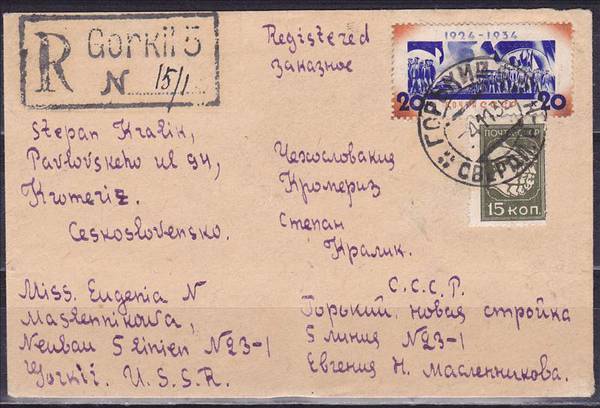 R Gorkii 5
N 15/1
Registered
заказное
1924-1934
20 20
ПОЧТА СССР
15 КОП.
Stepan Kralik,
Pavlovskeho ul 94,
Kromeriz.
Ceskoslovensko.
Чехословакия
Кромериз
Степан
Кралик.
Miss. Eugenia N
Maslennikowa,
Neubau 5 linien №23-1
Gorkii. U.S.S.R.
С.С.С.Р.
Горький новая стройка
5 линия №23-1
Евгения Н. Масленникова.